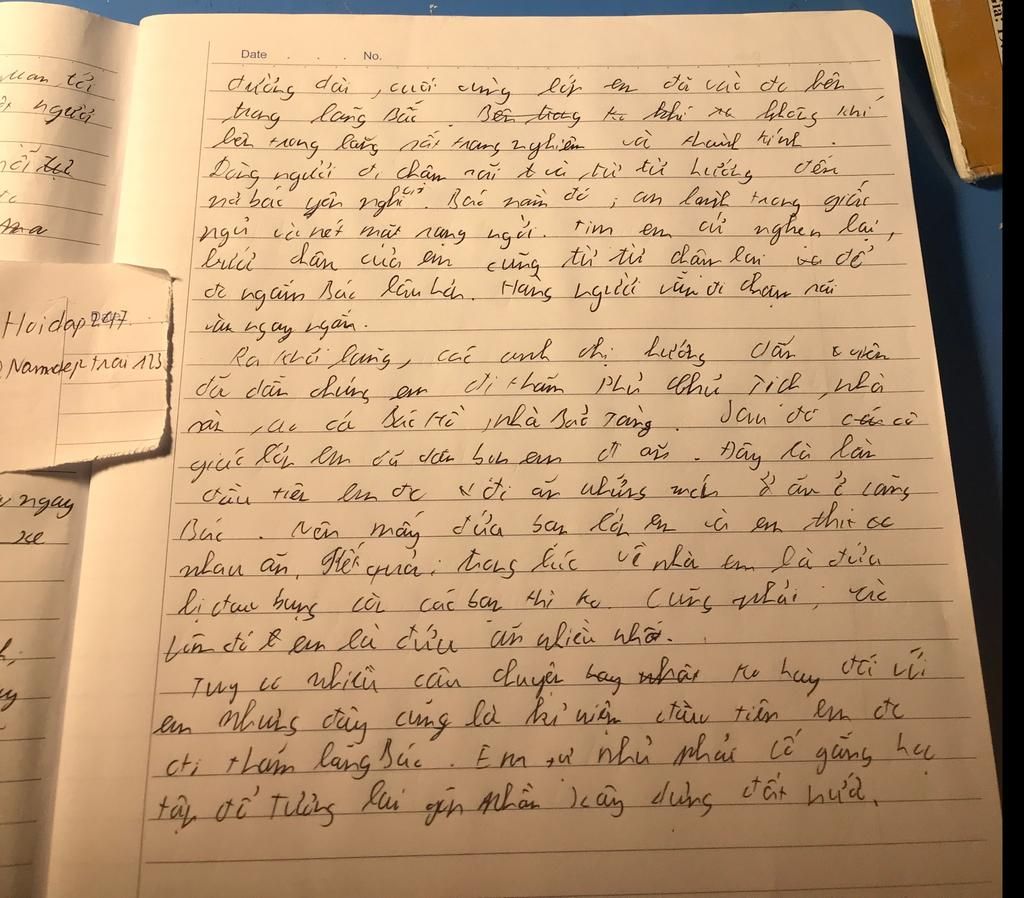 uan, tới
người
ngay
xe
Hoidap247
Namdeptrai123
Date . . . No.
đường dài, cuối cùng lớp em đã vào đc bên
trong lăng Bác. Bên trong ko khí không khí
bên trong lăng rất trang nghiêm và thành kính.
Dòng người đi chậm rãi từ từ hướng đến
nơi bác yên nghỉ. Bác nằm đó, an lành trong giấc
ngủ và nét mặt rạng ngời. Tim em cứ nghẹn lại,
bước chân của em cũng từ từ chậm lại để
đc ngắm Bác lâu hơn. Hàng người vẫn đi chậm rãi
và ngay ngắn.
Ra khỏi lăng, các anh chị hướng dẫn viên
đã dẫn chúng em đi thăm Phủ Chủ Tịch, nhà
sàn, ao cá Bác Hồ, nhà Bảo Tàng. Sau đó các cô
giáo lớp em đã dẫn bọn em đi ăn. Đây là lần
đầu tiên em đc đi ăn những món ăn ở Lăng
Bác. Nên mấy đứa bạn lớp em và em thi
nhau ăn. Kết quả, trong lúc về nhà em là đứa
bị đau bụng còn các bạn thì ko. Cũng phải,
em là đứa ăn nhiều nhất.
Tuy có nhiều câu chuyện hay ko hay đối với
em nhưng đây cũng là kỉ niệm đầu tiên em đc
đi thăm lăng Bác. Em tự nhủ phải cố gắng học
tập để tương lai góp phần xây dựng đất nước.